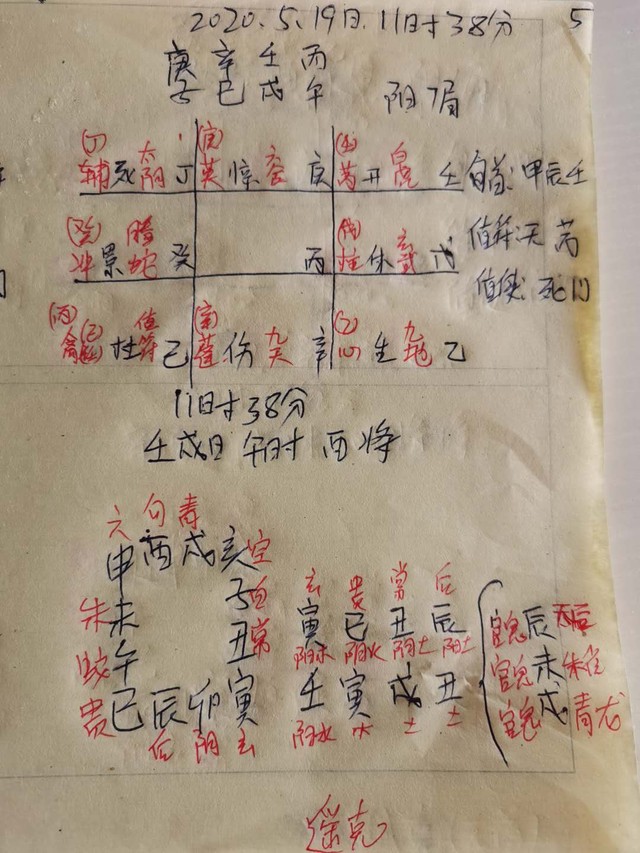 2020.5.19日.11时38分 5
庚辛壬丙
子巳戌午 阳7局
(丁) 太 (庚) (壬) 白
辅死阴丁 英惊六合庚 芮开虎壬 旬首:甲辰壬
(癸) 腾 (戊) 玄
冲景蛇癸 丙 柱休武戊 值符:天芮
值使:死门
(丙) (己) 值 (辛) (乙) 九
禽 杜符己 伤九天辛 心生地乙
11时38分
壬戌日 午时 酉将
六 勾 青
申酉戌亥空
朱未 子白 玄 贵 常 后
蛇午 丑常 寅巳丑辰
阳木 阳火 阴土 阳土
贵巳辰卯寅 壬寅戌丑
后 阴 玄 阳水 木 土 土
官鬼辰天后
官鬼未朱雀
官鬼戌青龙
遥克